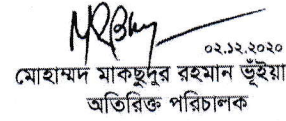 ০২.১২.২০২০
মোহাম্মদ মাকছুদুর রহমান ভূঁইয়া
অতিরিক্ত পরিচালক